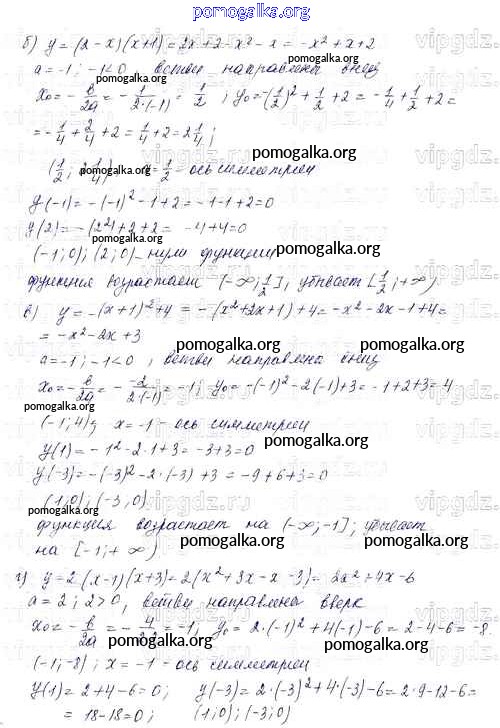 pomogalka.org
б) y = (2 - x)(x+1) = 2x + 2 - x² - x = -x² + x + 2
a = -1; -1 < 0 ветви направлены вниз
x₀ = -в/2a = -1/2·(-1) = 1/2; y₀ = -(1/2)² + 1/2 + 2 = -1/4 + 1/2 + 2 =
= -1/4 + 2/4 + 2 = 1/4 + 2 = 2 1/4;
pomogalka.org
(1/2; 2 1/4) x = 1/2 - ось симметрии
y(-1) = -(-1)² - 1 + 2 = -1 - 1 + 2 = 0
pomogalka.org
y(2) = -(2²) + 2 + 2 = -4 + 4 = 0
pomogalka.org
(-1; 0); (2; 0) - нули функции
pomogalka.org
функция возрастает (-∞; 1/2], убывает [1/2; +∞)
pomogalka.org
в) y = -(x+1)² + 4 = -(x² + 2x + 1) + 4 = -x² - 2x - 1 + 4 =
= -x² - 2x + 3
pomogalka.org
a = -1; -1 < 0, ветви направлены вниз
x₀ = -в/2a = - -2/2·(-1) = -1; y₀ = -(-1)² - 2(-1) + 3 = -1 + 2 + 3 = 4
pomogalka.org
(-1; 4); x = -1 - ось симметрии
y(1) = -1² - 2·1 + 3 = -3 + 3 = 0
pomogalka.org
y(-3) = -(-3)² - 2·(-3) + 3 = -9 + 6 + 3 = 0
pomogalka.org
(1; 0); (-3; 0)
pomogalka.org
функция возрастает на (-∞; -1]; убывает
на [-1; +∞)
pomogalka.org
г) y = 2(x-1)(x+3) = 2(x² + 3x - x - 3) = 2x² + 4x - 6
a = 2; 2 > 0, ветви направлены вверх
pomogalka.org
x₀ = -в/2a = -4/2·2 = -1; y₀ = 2·(-1)² + 4(-1) - 6 = 2 - 4 - 6 = -8
pomogalka.org
(-1; -8); x = -1 - ось симметрии
pomogalka.org
y(1) = 2 + 4 - 6 = 0; y(-3) = 2·(-3)² + 4·(-3) - 6 = 2·9 - 12 - 6 =
= 18 - 18 = 0; (1; 0); (-3; 0)
pomogalka.org